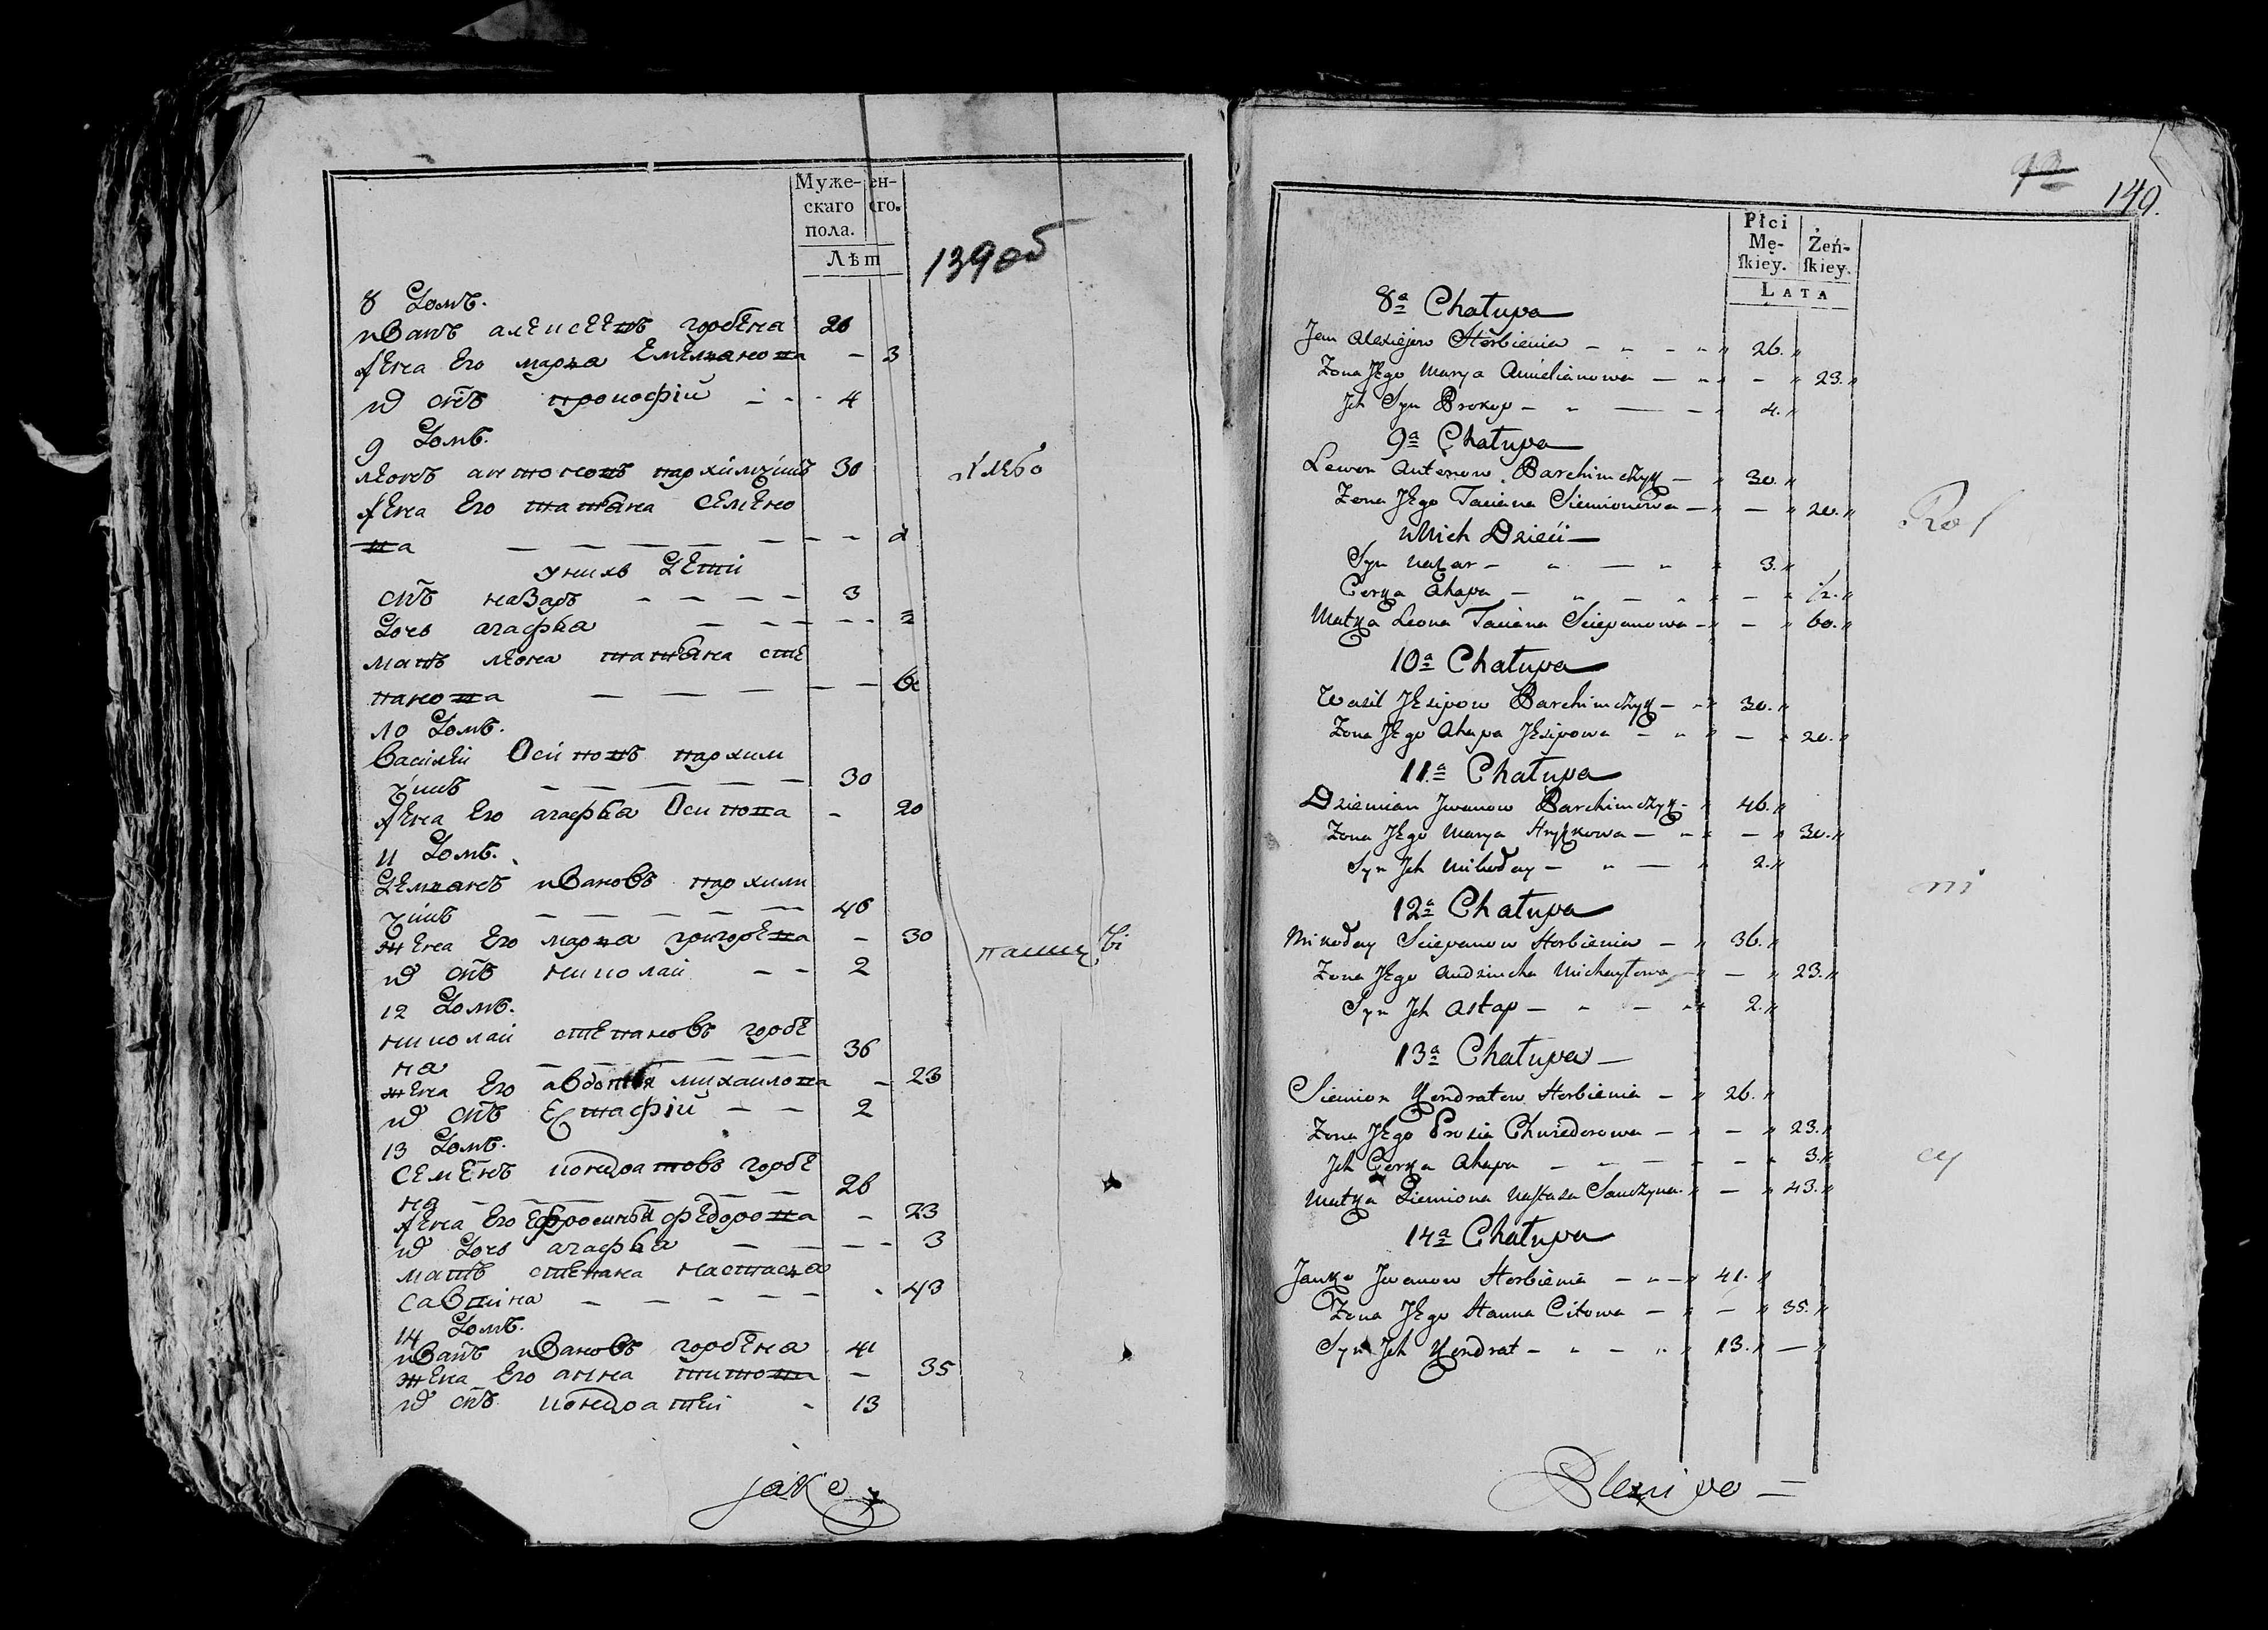 Муже-
скаго
пола.
ен-
сго.
Лѣт
139 об
8 Домъ.
иванъ алексеевъ горбена 26
жена его маръа емельанова - 3
их снъ прокофiй - - - 4
9 Домъ.
леонъ антоновъ пархимчикъ 30
жена его татьяна семено
ва - - - - - - - 2
у них дети
снъ назаръ - - - - 3
дочь агафья - - - - - 2
мать леона татьяна сте
панова - - - - - 6
10 Домъ.
василей осиповъ пархим
чикъ - - - - - 30
жена его агафья осипова - 20
11 Домъ.
демьянъ ивановъ пархим
чикъ - - - - - 46
жена его маръа григорева - 30
их снъ николай - - 2
12 Домъ.
николай степановъ горбе
на - - - - - - 36
жена его авдотья михаилова - 23
их снъ естафiй - - 2
13 Домъ.
семенъ кондратовъ горбе
на - - - - - 26
жена его ефросинья федорова - 23
их дочь агафья - - - - 3
мать степана настасъа
савина - - - - - - 43
14 Домъ.
иванъ ивановъ горбена 41
жена его анна титова - 35
их снъ кондратей - 13
хлебо
пашцы
jako
140.
Płci
Mę-
skiey.
Żeń-
skiey.
LATA
8a Chałupa
Jan Alexiejew Horbienia - - - - 26.
Zona Jego Marya Amelianowa - - - 23.
Jch Syn Prokop - - - - 4.
9a Chałupa
Lewon Antonow Parchimczyk - 30.
Zona Jego Taciana Siemionowa - - 20.
u Nich Dzieci
Syn Nazar - - - - 3.
Corka Ahapa - - - - - - ½.
Matka Leona Taciana Sciepanowa - - 60.
10a Chałupa
Wasil Jesipow Parchimczyk - - 30.
Zona Jego Ahapa Jesipowa - - - 20.
11a Chałupa
Dziemian Jwanow Parchimczyk - 46.
Zona Jego Marya Hryszkowa - - - 30.
Syn Jch Mikołay - - - 2.
12a Chałupa
Mikołay Sciepanow Horbienia - 36.
Zona Jego Audziucha Michayłowa - - 23.
Syn Jch Astap - - - - 2.
13a Chałupa -
Siemion Kondratow Horbienia - 26.
Zona Jego Prosia Chwiedorowa - - 23.
Jch Corka Ahapa - - - - - 3.
Matka Siemiona Nastasia Sawczyna - 43.
14a Chałupa
Janko Jwanow Horbienia - - - 41.
Zona Jego Hanna Citowa - - 35.
Syn Jch Kondrat - - - - 13. -
Rol
ni
cy